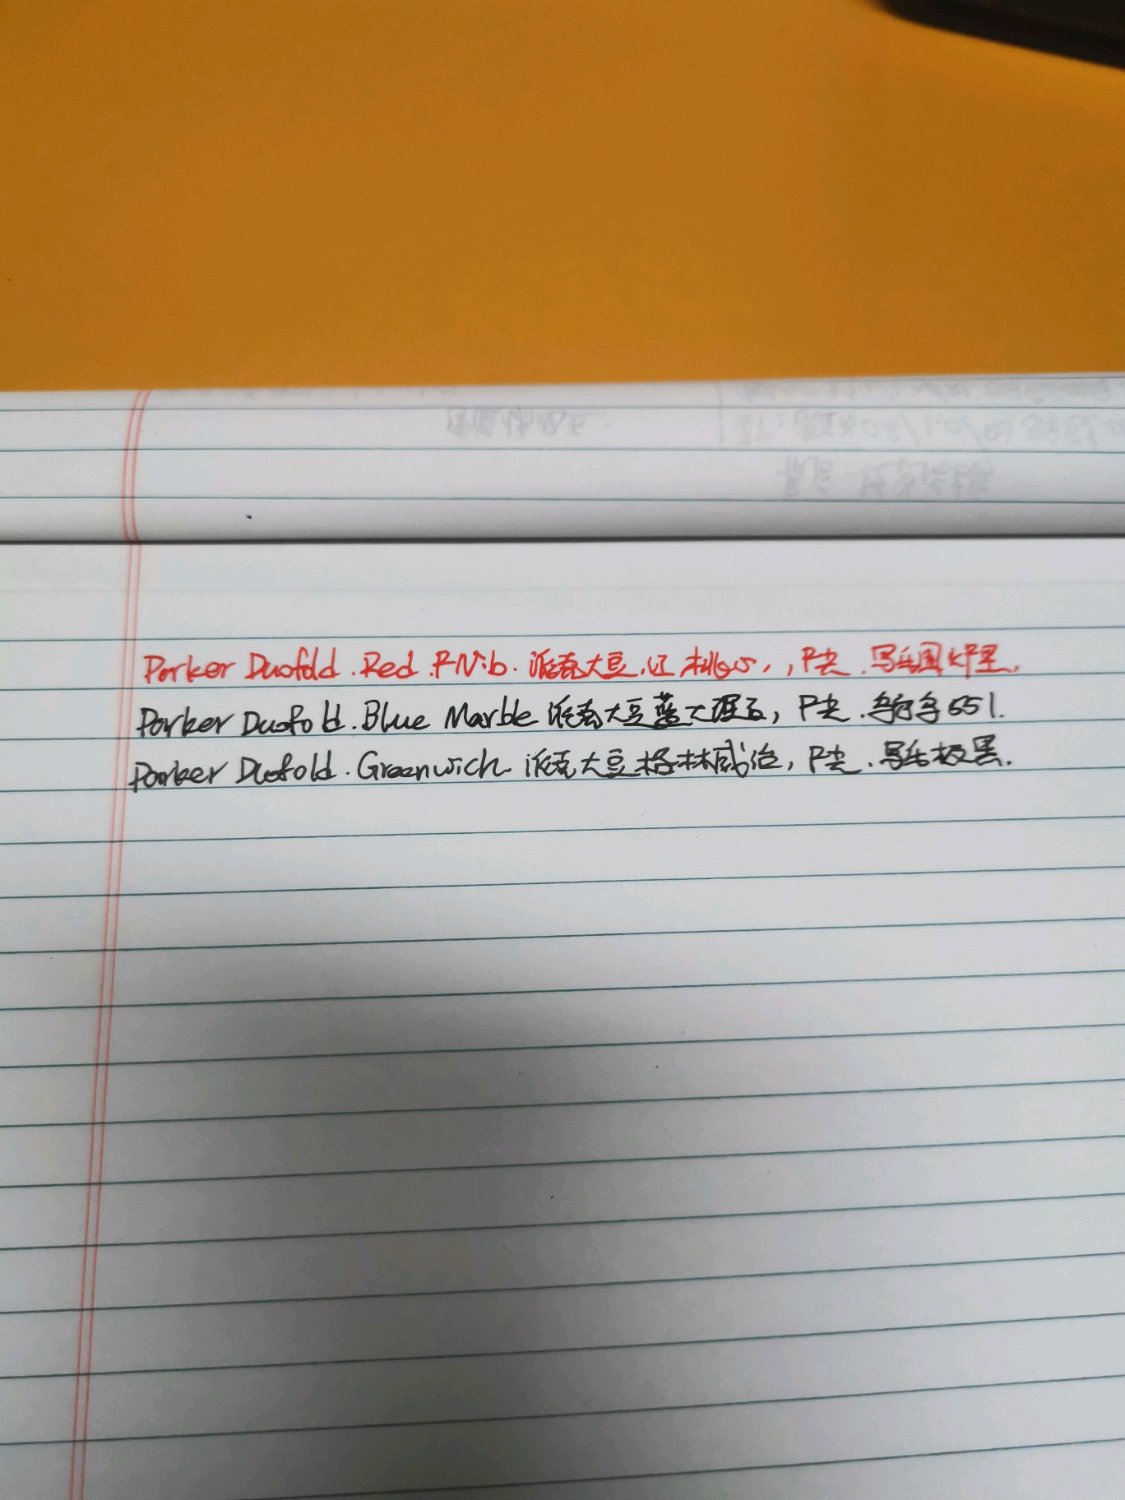 Parker Duofold. Red. F Nib. 派克大豆. 红桃心, , F尖. 写乐
Parker Duofold. Blue Marble 派克大豆蓝大理石, F尖. 651.
Parker Duofold. Greenwich 派克大豆格林威治, F尖. 写乐极黑.